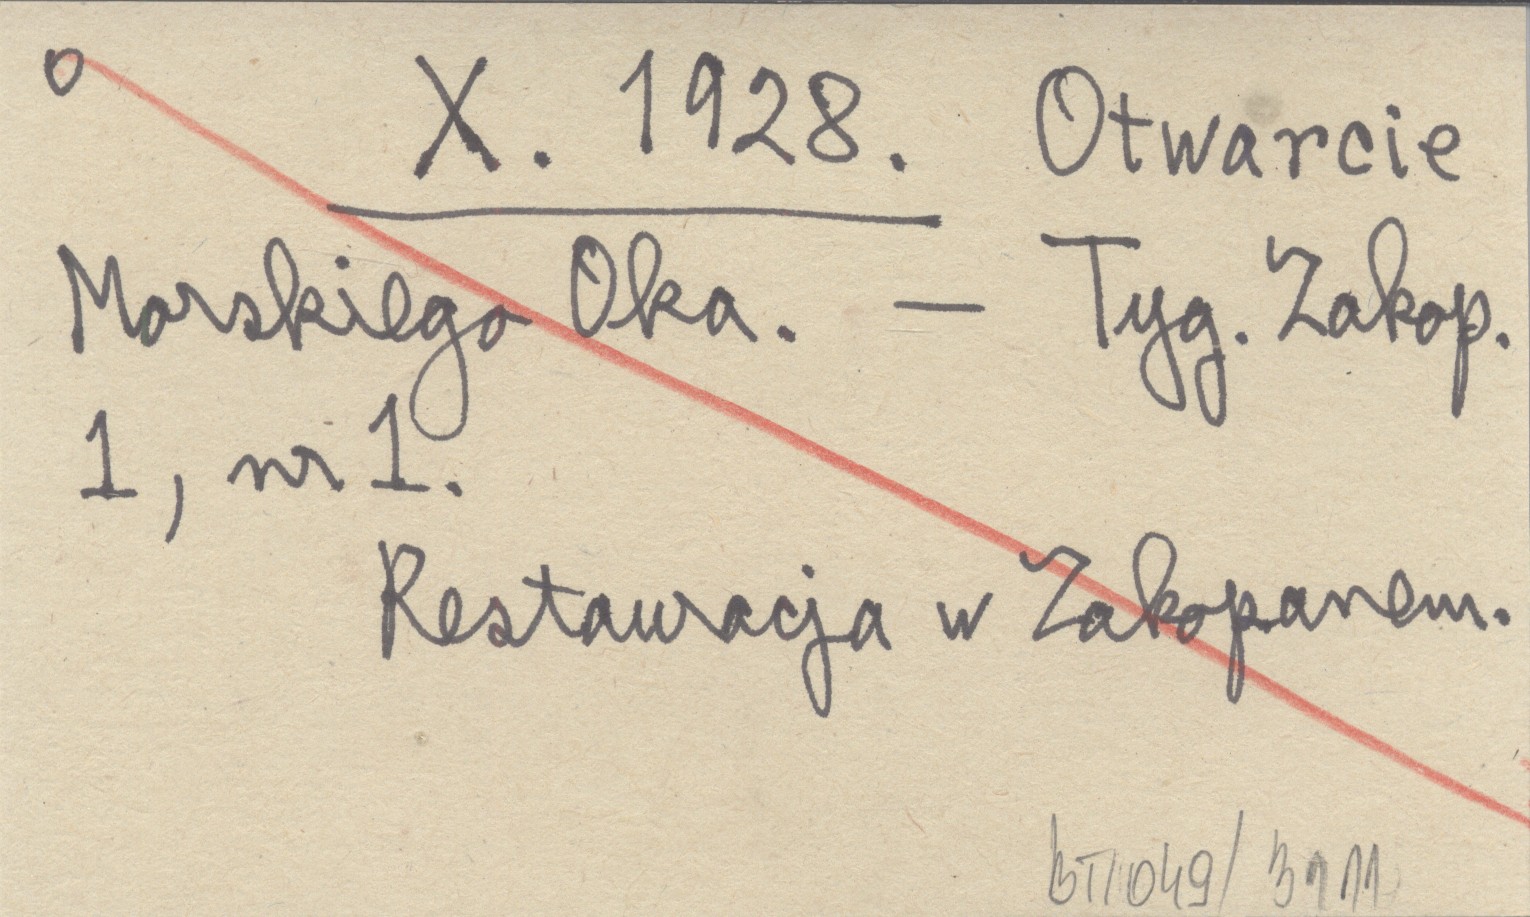 o X. 1928. Otwarcie
Morskiego Oka. — Tyg. Zakop.
1, nr 1.
Restauracja w Zakopanem.
BT/049/